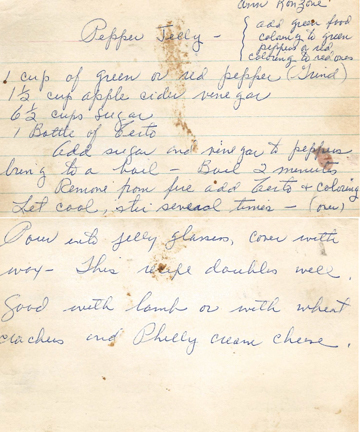 Ann Ronzone
Pepper Jelly -
{ add green food
coloring to green
peppers or red
coloring to red ones
1 cup of green or red pepper (Grind)
1 1/2 cup apple cider vinegar
6 1/2 cups sugar
1 Bottle of Certo
Add sugar and vinegar to peppers
bring to a boil - Boil 2 minutes
Remove from fire add Certo & coloring
Let cool, stir several times - (over)
Pour into jelly glasses, cover with
wax - This recipe doubles well.
Good with lamb or with wheat
crackers and Philly cream cheese.